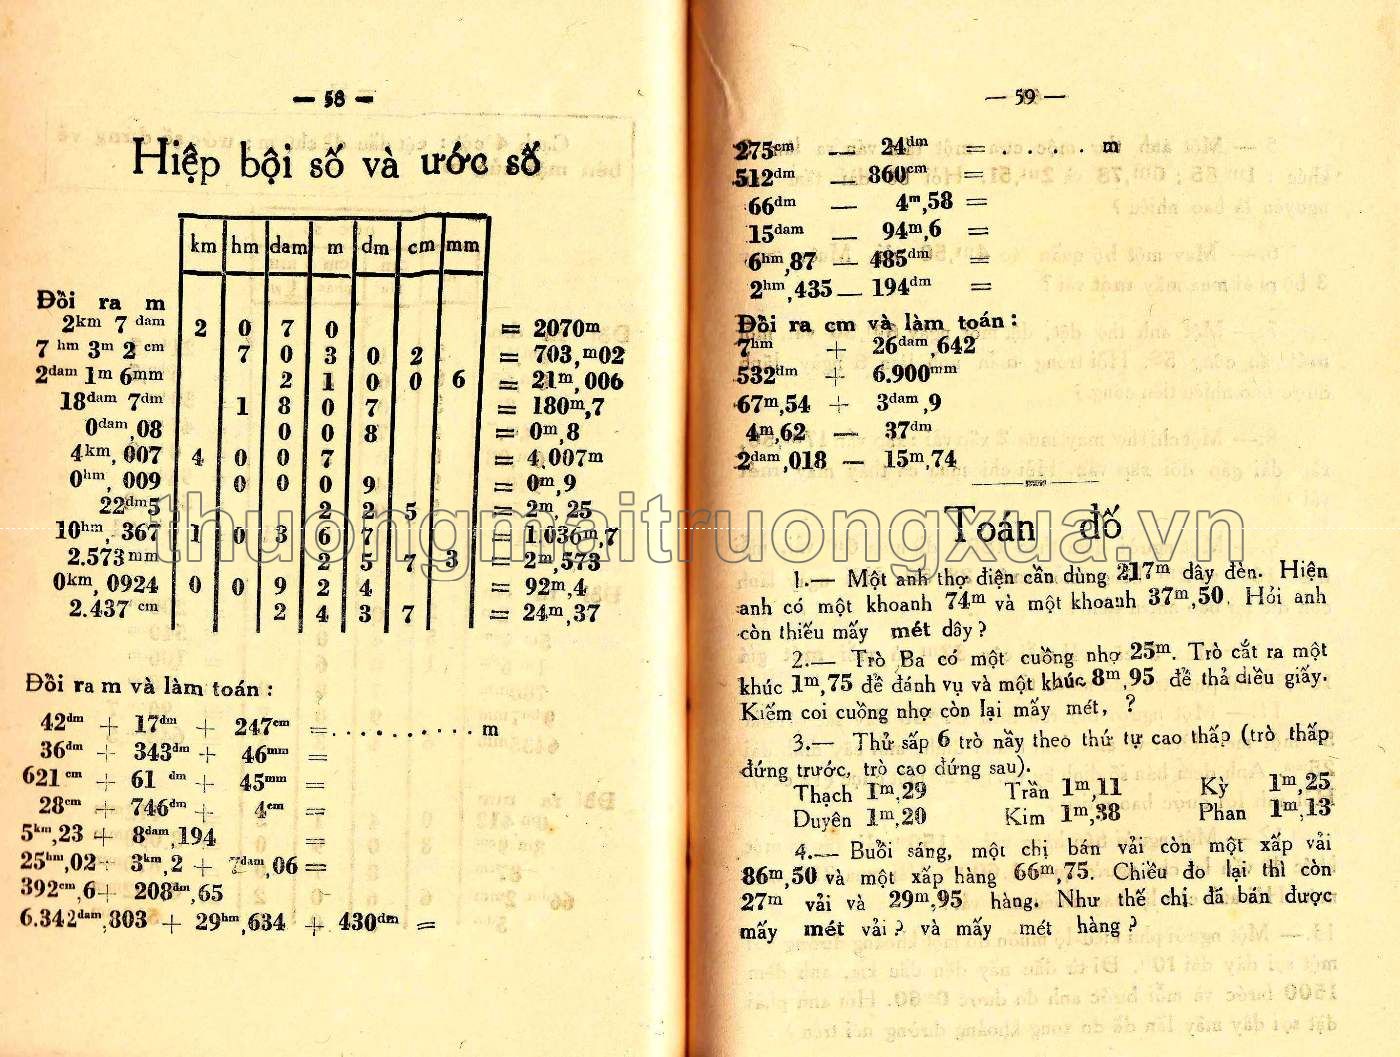 — 58 —
Hiệp bội số và ước số
km hm dam m dm cm mm
Đổi ra m
2km 7 dam 2 0 7 0 = 2070m
7 hm 3m 2 cm 7 0 3 0 2 = 703,m02
2dam 1m 6mm 2 1 0 0 6 = 21m,006
18dam 7dm 1 8 0 7 = 180m,7
0dam,08 0 0 8 = 0m,8
4km, 007 4 0 0 7 = 4.007m
0hm, 009 0 0 0 9 = 0m,9
22dm5 2 2 5 = 2m, 25
10hm, 367 1 0 3 6 7 = 1.036m,7
2.573mm 2 5 7 3 = 2m,573
0km, 0924 0 0 9 2 4 = 92m,4
2.437 cm 2 4 3 7 = 24m,37
Đổi ra m và làm toán :
42dm + 17dm + 247cm = . . . . . . . . . . m
36dm + 343dm + 46mm =
621 cm + 61 dm + 45mm =
28cm + 746dm + 4cm =
5km,23 + 8dam,194 =
25hm,02 + 3km,2 + 7dam,06 =
392cm,6 + 208dm,65
6.342dam,803 + 29hm,634 + 430dm =
— 59 —
275cm — 24dm = . . . . m
512dm — 860cm =
66dm — 4m,58 =
15dam — 94m,6 =
6hm,87 — 485dm =
2hm,435 — 194dm =
Đổi ra cm và làm toán :
7hm + 26dam,642
532dm + 6.900mm
67m,54 + 3dam,9
4m,62 — 37dm
2dam,018 — 15m,74
Toán đố
1.— Một anh thợ điện cần dùng 217m dây đèn. Hiện
anh có một khoanh 74m và một khoanh 37m,50. Hỏi anh
còn thiếu mấy mét dây ?
2.— Trò Ba có một cuồng nhợ 25m. Trò cắt ra một
khúc 1m,75 để đánh vụ và một khúc 8m,95 để thả diều giấy.
Kiểm coi cuồng nhợ còn lại mấy mét, ?
3.— Thử sấp 6 trò nầy theo thứ tự cao thấp (trò thấp
đứng trước, trò cao đứng sau).
Thạch 1m,29 Trần 1m,11 Kỳ 1m,25
Duyên 1m,20 Kim 1m,38 Phan 1m,13
4.— Buổi sáng, một chị bán vải còn một xấp vải
86m,50 và một xấp hàng 66m,75. Chiều đo lại thì còn
27m vải và 29m,95 hàng. Như thế chị đã bán được
mấy mét vải ? và mấy mét hàng ?
thuongmaitruongxua.vn